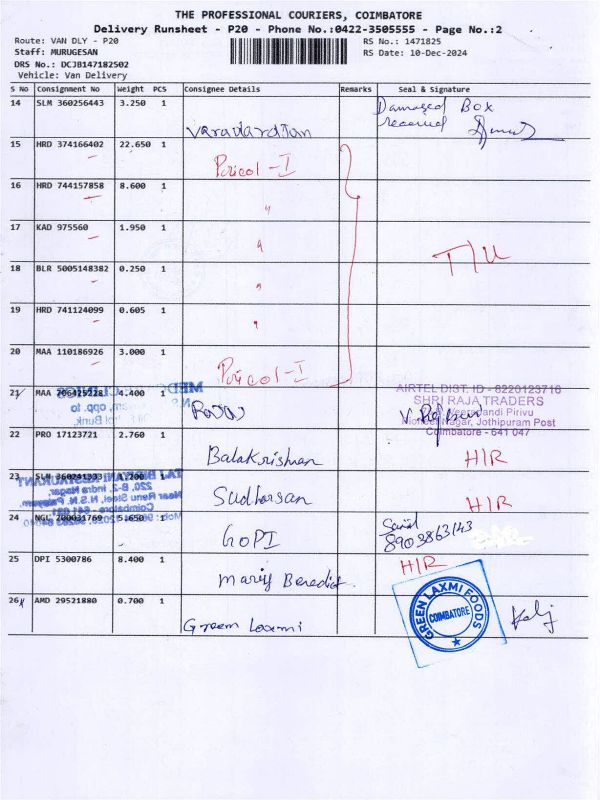 THE PROFESSIONAL COURIERS, COIMBATORE
Delivery Runsheet - P20 - Phone No.:0422-3505555 - Page No.:2
Route: VAN DLY - P20
RS No.: 1471825
Staff: MURUGESAN
RS Date: 10-Dec-2024
DRS No.: DCJB147182502
Vehicle: Van Delivery
S No Consignment No Weight PCS Consignee Details Remarks Seal & Signature
14 SLM 360256443 3.250 1 Varadardjan Damaged Box
received
15 HRD 374166402 22.650 1 Pricol - I
16 HRD 744157858 8.600 1 "
17 KAD 975560 1.950 1 " T/U
18 BLR 5005148382 0.250 1 "
19 HRD 741124099 0.605 1 "
20 MAA 110186926 3.000 1 Pricol - I
21 MAA 206425228 4.400 1
AIRTEL DIST. ID - 8220123716
SHRI RAJA TRADERS
Veerapandi Pirivu
Nagar, Jothipuram Post
Coimbatore - 641 047
22 PRO 17123721 2.760 1 Balakrishnan H/R
23 SLM 360241333 1.200 1 Sudharsan H/R
24 NGL 200031769 5.650 1 GOPI
8903863143
25 DPI 5300786 8.400 1 Mary Benedict H/R
26 AMD 29521880 0.700 1 Green Laxmi
GREEN LAXMI FOODS
COIMBATORE